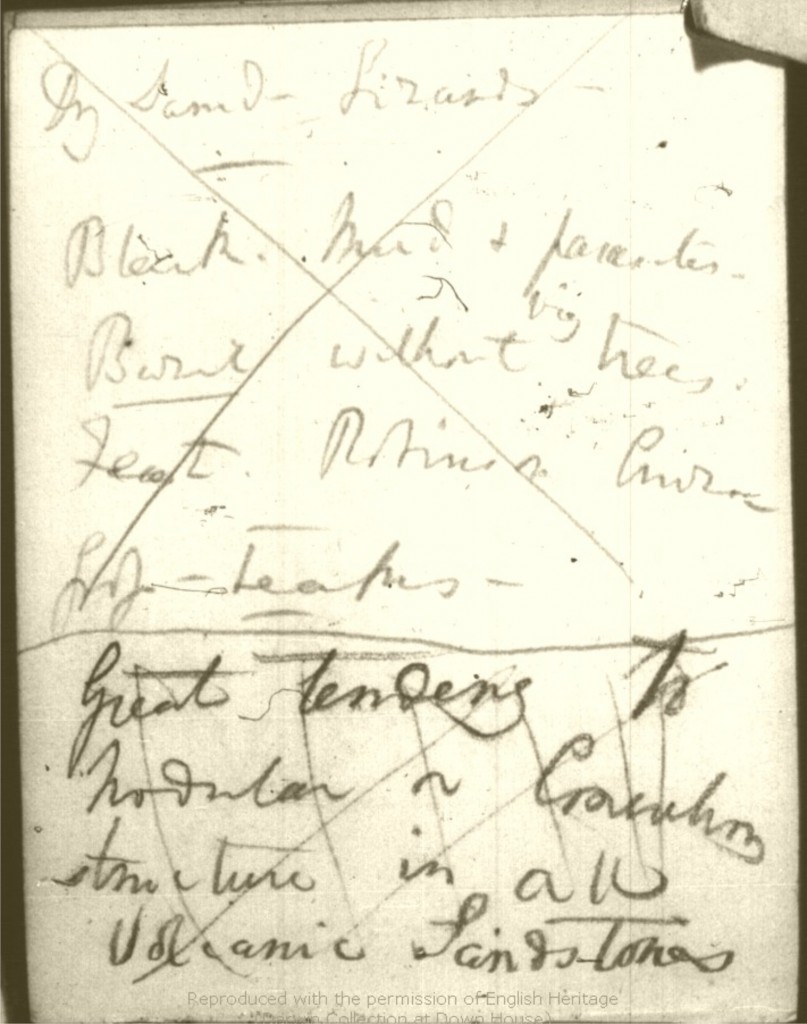 Dry Sand – Lizards –
Bleak. Mud & parasites –
big
Burnt without trees.
Feast. Robinson Crusoe
– teapots –
Great tendency to
nodular or Concretionary
structure in all
Volcanic Sandstones
Reproduced with the permission of English Heritage
(Darwin Collection at Down House)